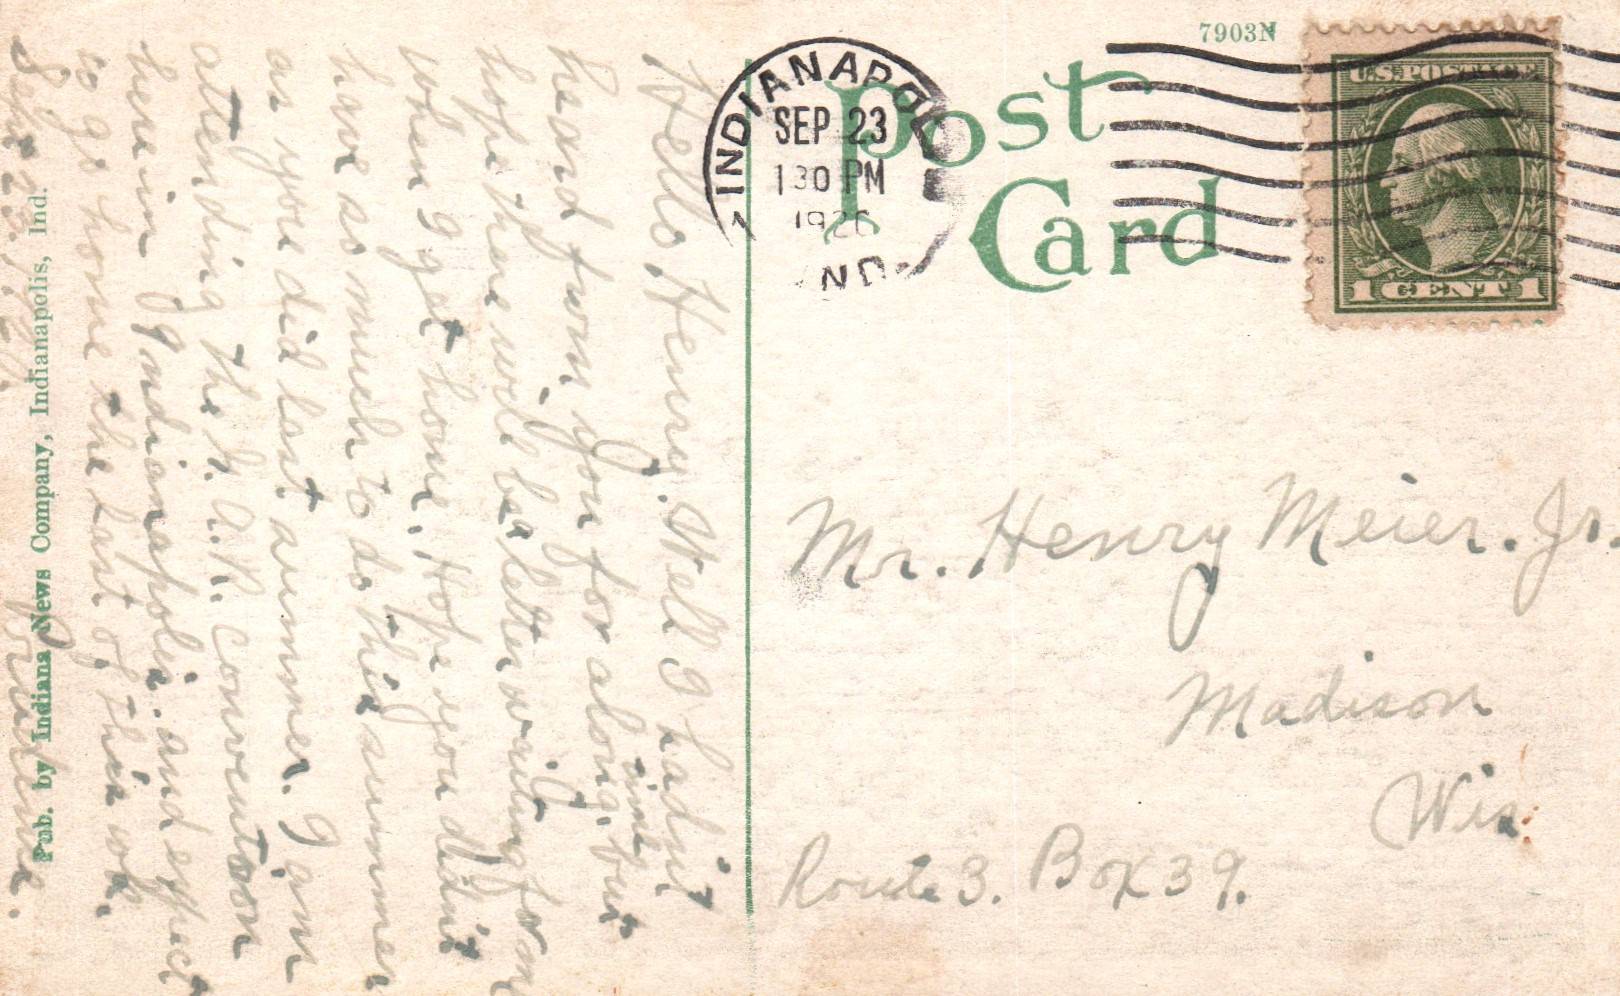 7903N
Post
Card
INDIANAPOL
SEP 23
1 30 PM
IND.
U.S. POSTAGE
1 CENT 1
Mr. Henry Meier. Jr.
Madison
Wis.
Route 3. Box 39.
Hello, Henry. Well I hadn't
heard from you for a long time, but
hope there will be a letter waiting for me
when I get home. Hope you didn't
have so much to do this summer
as you did last summer. I am
attending the G.A.R. convention
here in Indianapolis. and expect
to go home the last of this wk.
Sept 23.
Pub. by Indiana News Company, Indianapolis, Ind.